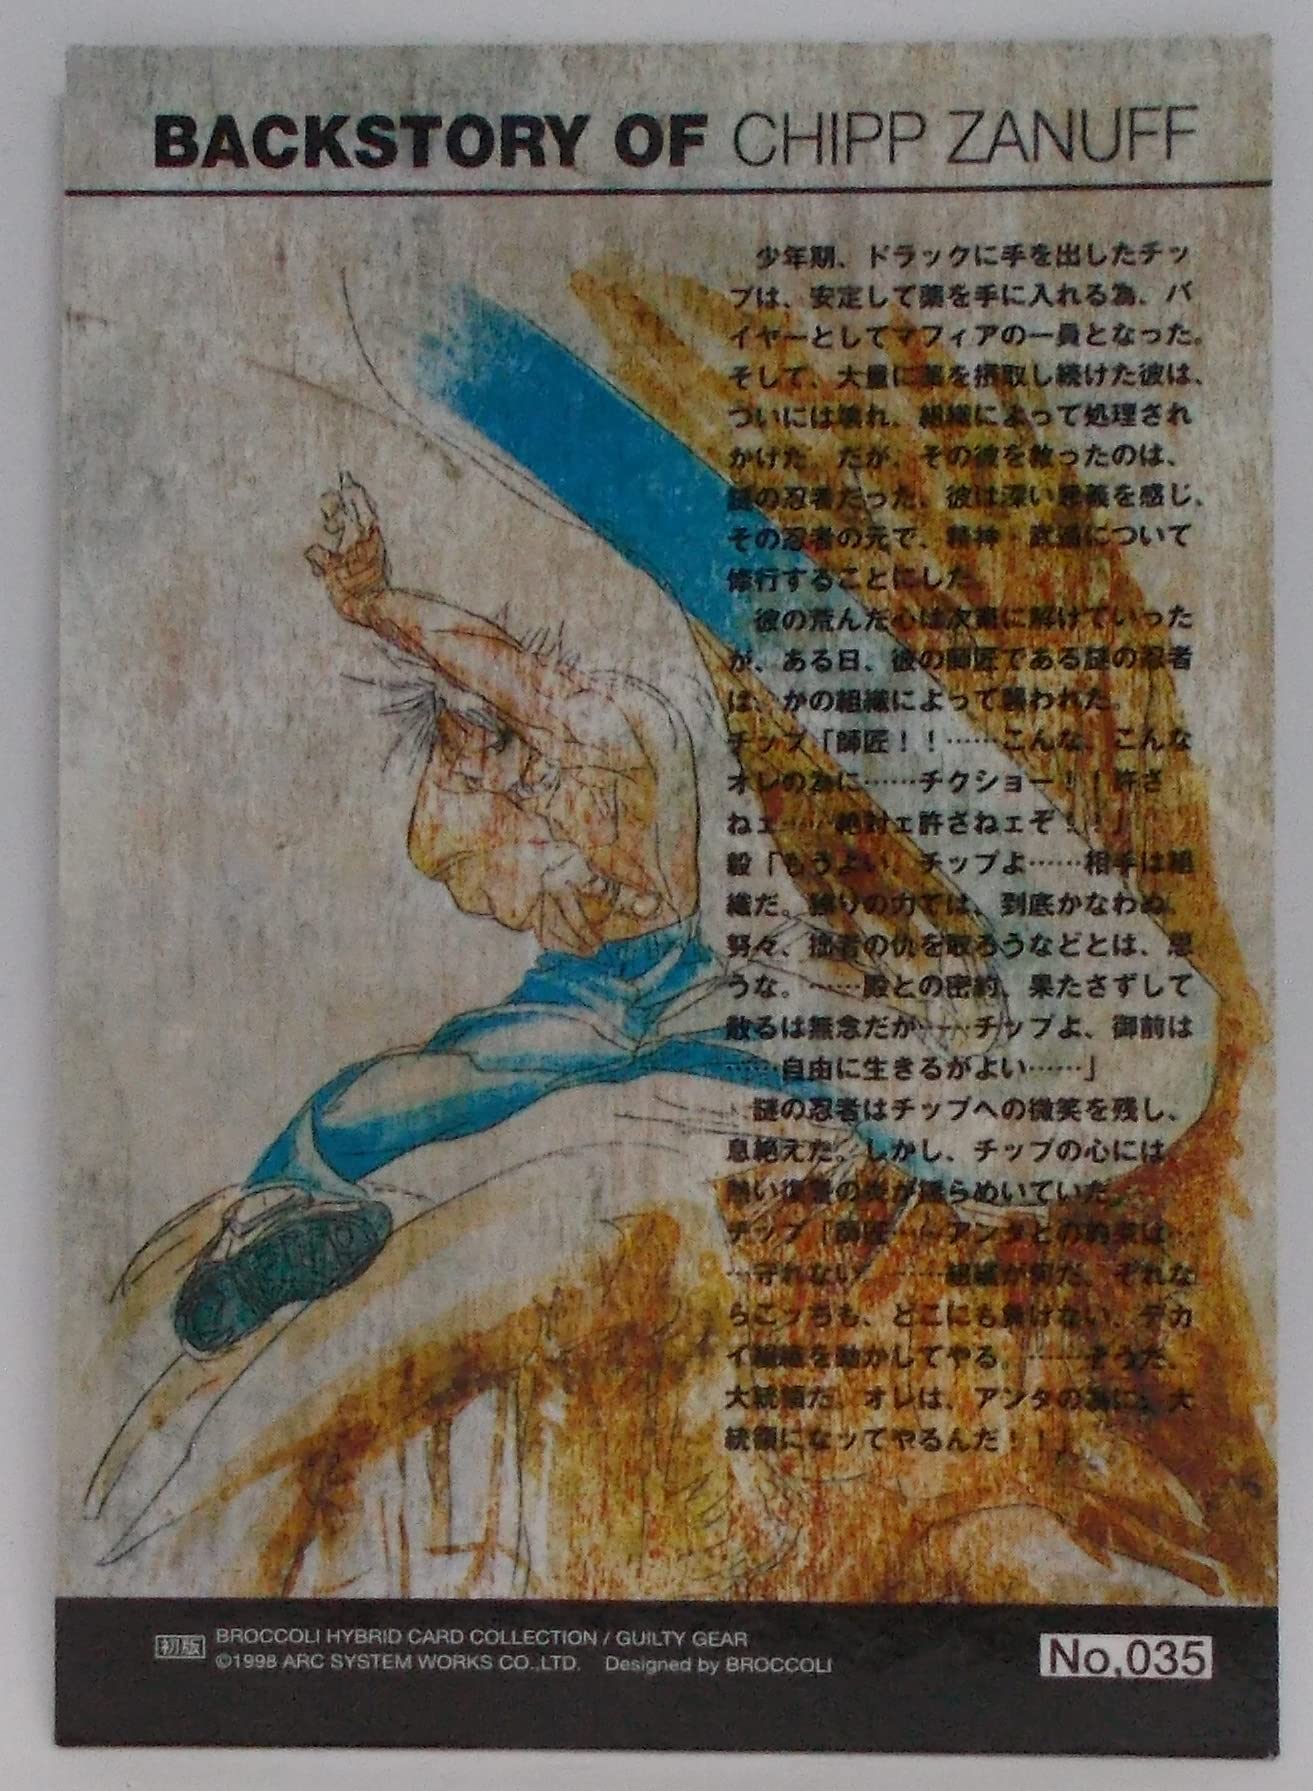 BACKSTORY OF CHIPP ZANUFF
少年期、ドラックに手を出したチッ
プは、安定して薬を手に入れる為、バ
イヤーとしてマフィアの一員となった。
そして、大量に薬を摂取し続けた彼は、
ついには壊れ、組織によって処理され
かけた。だが、その彼を救ったのは、
謎の忍者だった。彼は深い恩義を感じ、
その忍者の元で、精神・武道について
修行することにした。
彼の荒んだ心は次第に解けていった
が、ある日、彼の師匠である謎の忍者
は、かの組織によって襲われた。
チップ「師匠！！……こんな、こんな
オレの為に……チクショー！！許さ
ねェ……絶対ェ許さねェぞ！！」
毅「もうよい、チップよ……相手は組
織だ。独りの力では、到底かなわぬ。
努々、拙者の仇を取ろうなどとは、思
うな。……殿との密約、果たさずして
散るは無念だが……チップよ、御前は
……自由に生きるがよい……」
謎の忍者はチップへの微笑を残し、
息絶えた。しかし、チップの心には、
熱い復讐の炎が揺らめいていた。
チップ「師匠……アンタとの約束は…
…守れない。……組織が何だ、それな
らこッちも、どこにも負けない、デカ
イ組織を動かしてやる。……そうだ、
大統領だ。オレは、アンタの為に、大
統領になッてやるんだ！！」
初版
BROCCOLI HYBRID CARD COLLECTION / GUILTY GEAR
©1998 ARC SYSTEM WORKS CO.,LTD. Designed by BROCCOLI
No,035